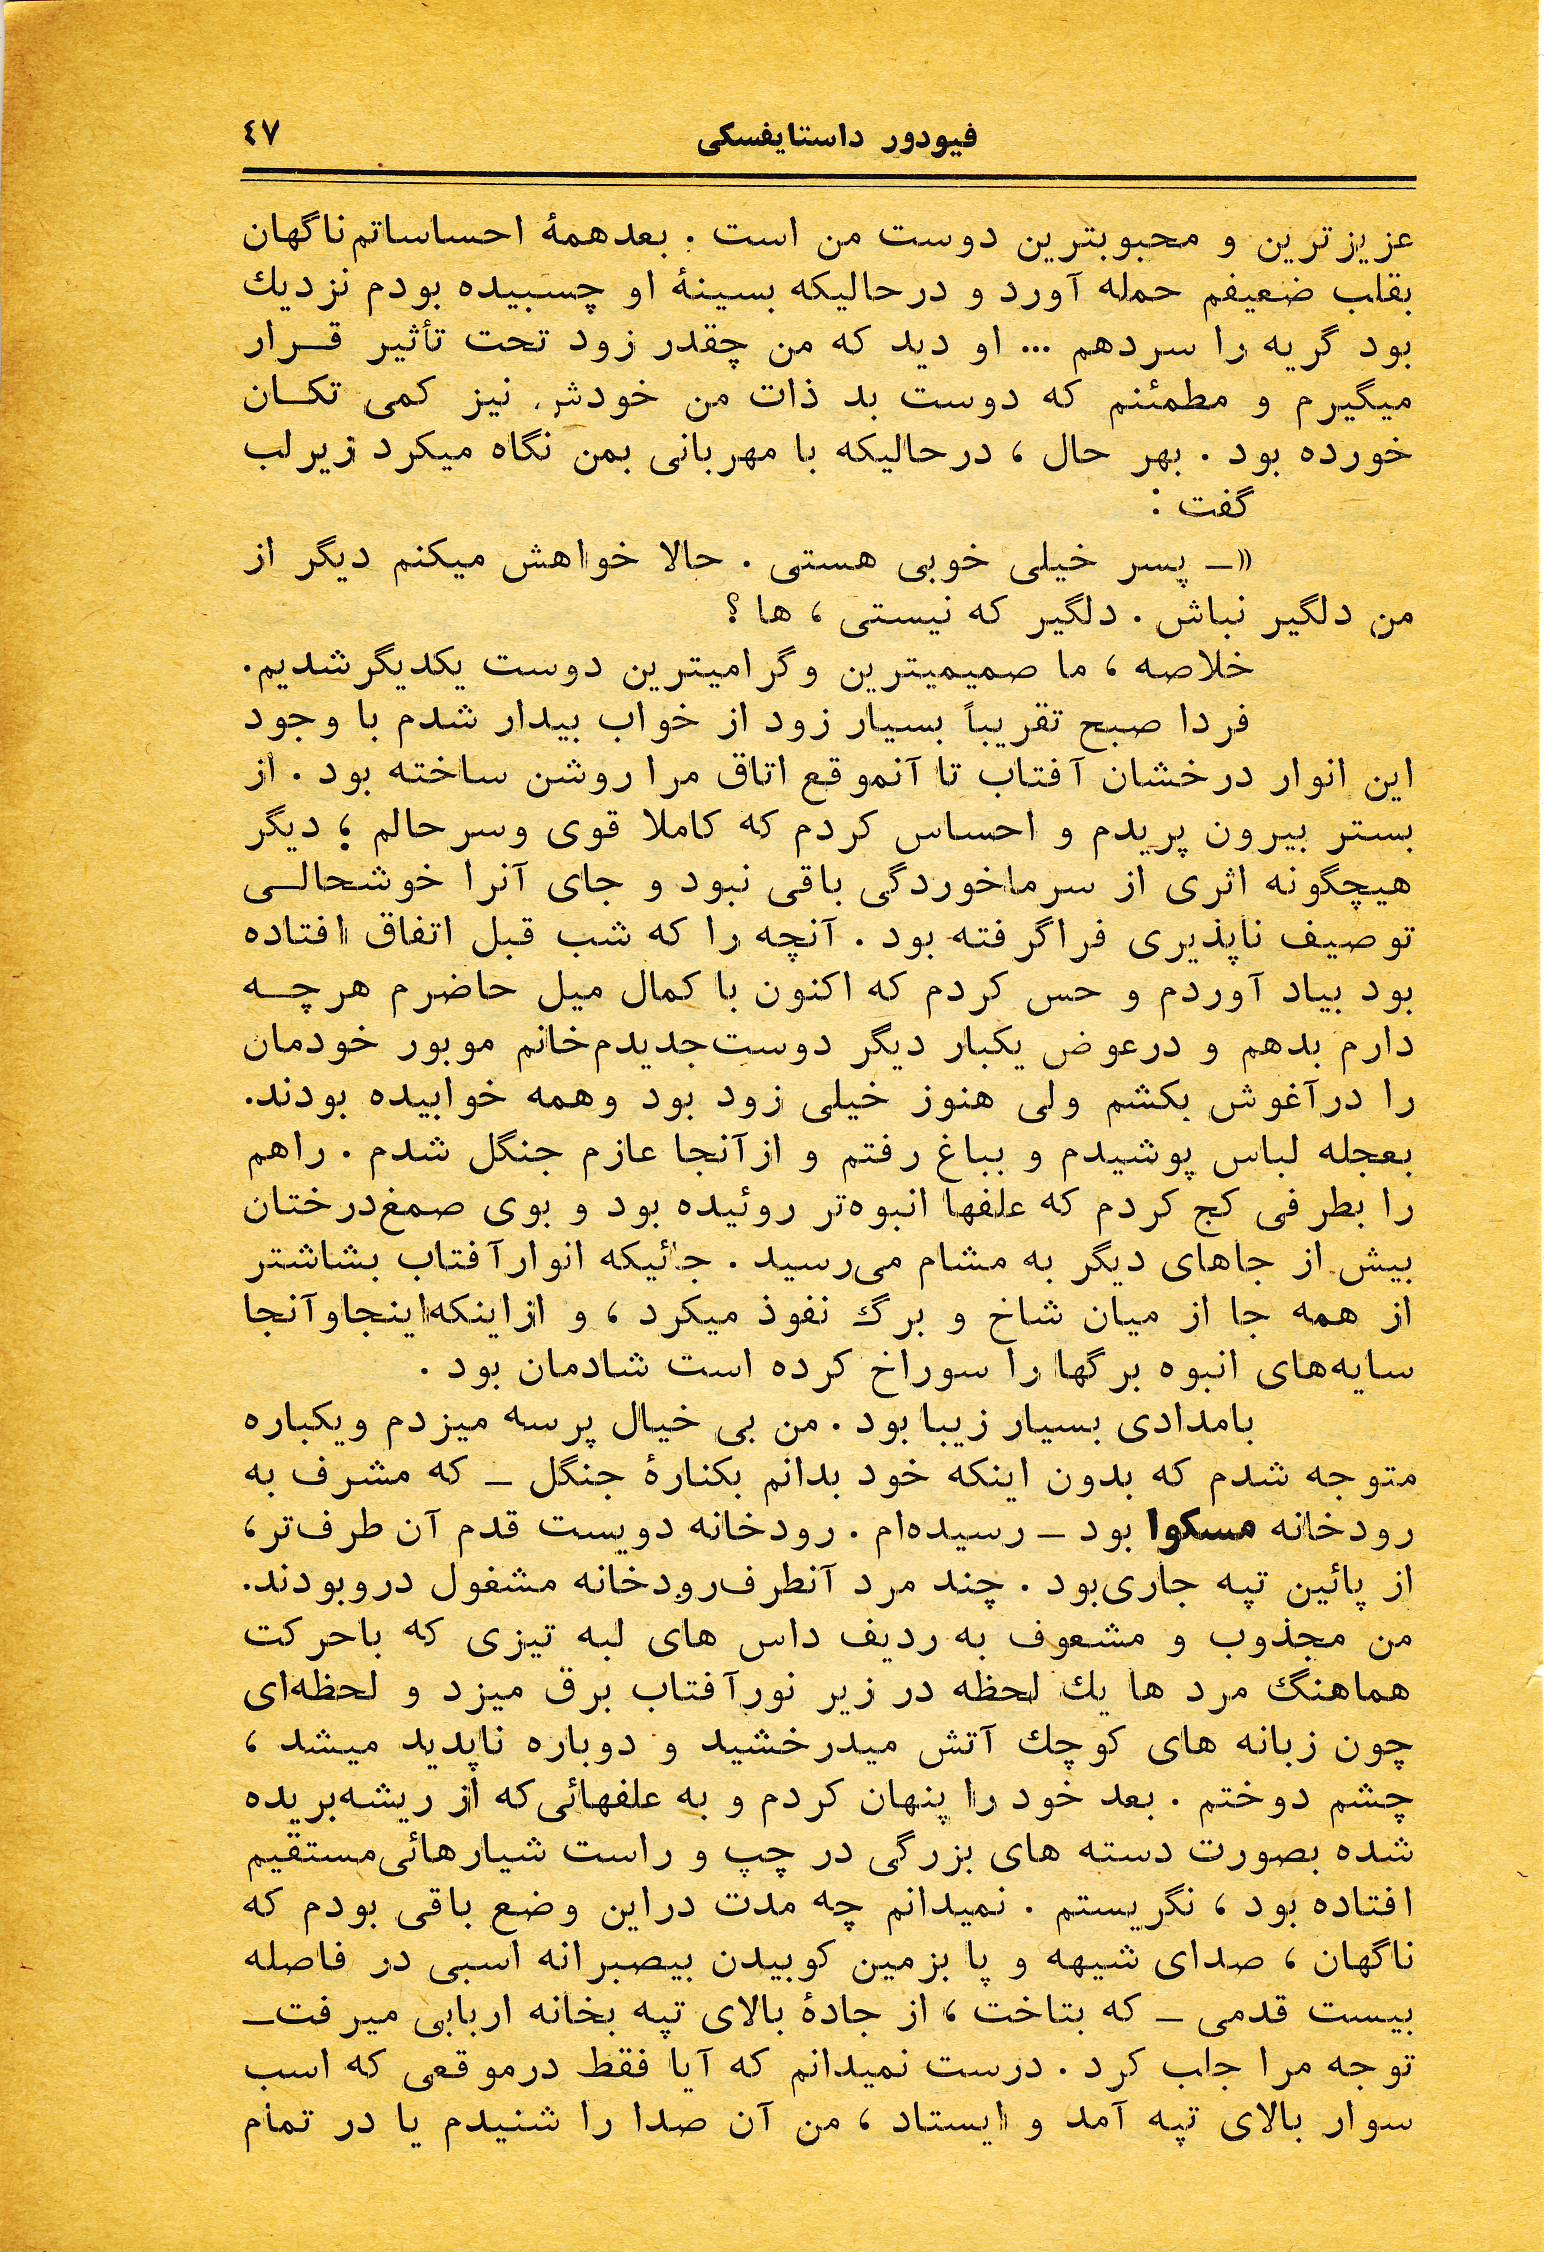 فیودور داستایفسکی ٤٧
عزیزترین و محبوبترین دوست من است . بعد همهٔ احساساتم ناگهان
بقلب ضعیفم حمله آورد و درحالیکه بسینهٔ او چسبیده بودم نزدیك
بود گریه را سردهم ... او دید که من چقدر زود تحت تأثیر قـرار
میگیرم و مطمئنم که دوست بد ذات من خودش نیز کمی تکـان
خورده بود . بهر حال ، درحالیکه با مهربانی بمن نگاه میکرد زیرلب
گفت :
«ــ پسر خیلی خوبی هستی . حالا خواهش میکنم دیگر از
من دلگیر نباش . دلگیر که نیستی ، ها ؟
خلاصه ، ما صمیمیترین و گرامیترین دوست یکدیگر شدیم.
فردا صبح تقریباً بسیار زود از خواب بیدار شدم با وجود
این انوار درخشان آفتاب تا آنموقع اتاق مرا روشن ساخته بود . از
بستر بیرون پریدم و احساس کردم که کاملا قوی وسرحالم ؛ دیگر
هیچگونه اثری از سرماخوردگی باقی نبود و جای آنرا خوشحالـی
توصیف ناپذیری فراگرفته بود . آنچه را که شب قبل اتفاق افتاده
بود بیاد آوردم و حس کردم که اکنون با کمال میل حاضرم هرچـه
دارم بدهم و درعوض یکبار دیگر دوست‌جدیدم‌خانم موبور خودمان
را درآغوش بکشم ولی هنوز خیلی زود بود وهمه خوابیده بودند.
بعجله لباس پوشیدم و بباغ رفتم و ازآنجا عازم جنگل شدم . راهم
را بطرفی کج کردم که علفها انبوه‌تر روئیده بود و بوی صمغ‌درختان
بیش از جاهای دیگر به مشام می‌رسید . جائیکه انوارآفتاب بشاشتر
از همه جا از میان شاخ و برگ نفوذ میکرد ، و ازاینکه‌اینجاوآنجا
سایه‌های انبوه برگها را سوراخ کرده است شادمان بود .
بامدادی بسیار زیبا بود . من بی خیال پرسه میزدم ویکباره
متوجه شدم که بدون اینکه خود بدانم بکنارهٔ جنگل ــ که مشرف به
رودخانه مسکوا بود ــ رسیده‌ام . رودخانه دویست قدم آن طرف‌تر،
از پائین تپه جاری‌بود . چند مرد آنطرف‌رودخانه مشغول دروبودند.
من مجذوب و مشعوف به ردیف داس های لبه تیزی که باحرکت
هماهنگ مرد ها یك لحظه در زیر نورآفتاب برق میزد و لحظه‌ای
چون زبانه های کوچك آتش میدرخشید و دوباره ناپدید میشد ،
چشم دوختم . بعد خود را پنهان کردم و به علفهائی‌که از ریشه‌بریده
شده بصورت دسته های بزرگی در چپ و راست شیارهائی‌مستقیم
افتاده بود ، نگریستم . نمیدانم چه مدت دراین وضع باقی بودم که
ناگهان ، صدای شیهه و پا بزمین کوبیدن بیصبرانه اسبی در فاصله
بیست قدمی ــ که بتاخت ، از جادهٔ بالای تپه بخانه اربابی میرفت‌ــ
توجه مرا جلب کرد . درست نمیدانم که آیا فقط درموقعی که اسب
سوار بالای تپه آمد و ایستاد ، من آن صدا را شنیدم یا در تمام